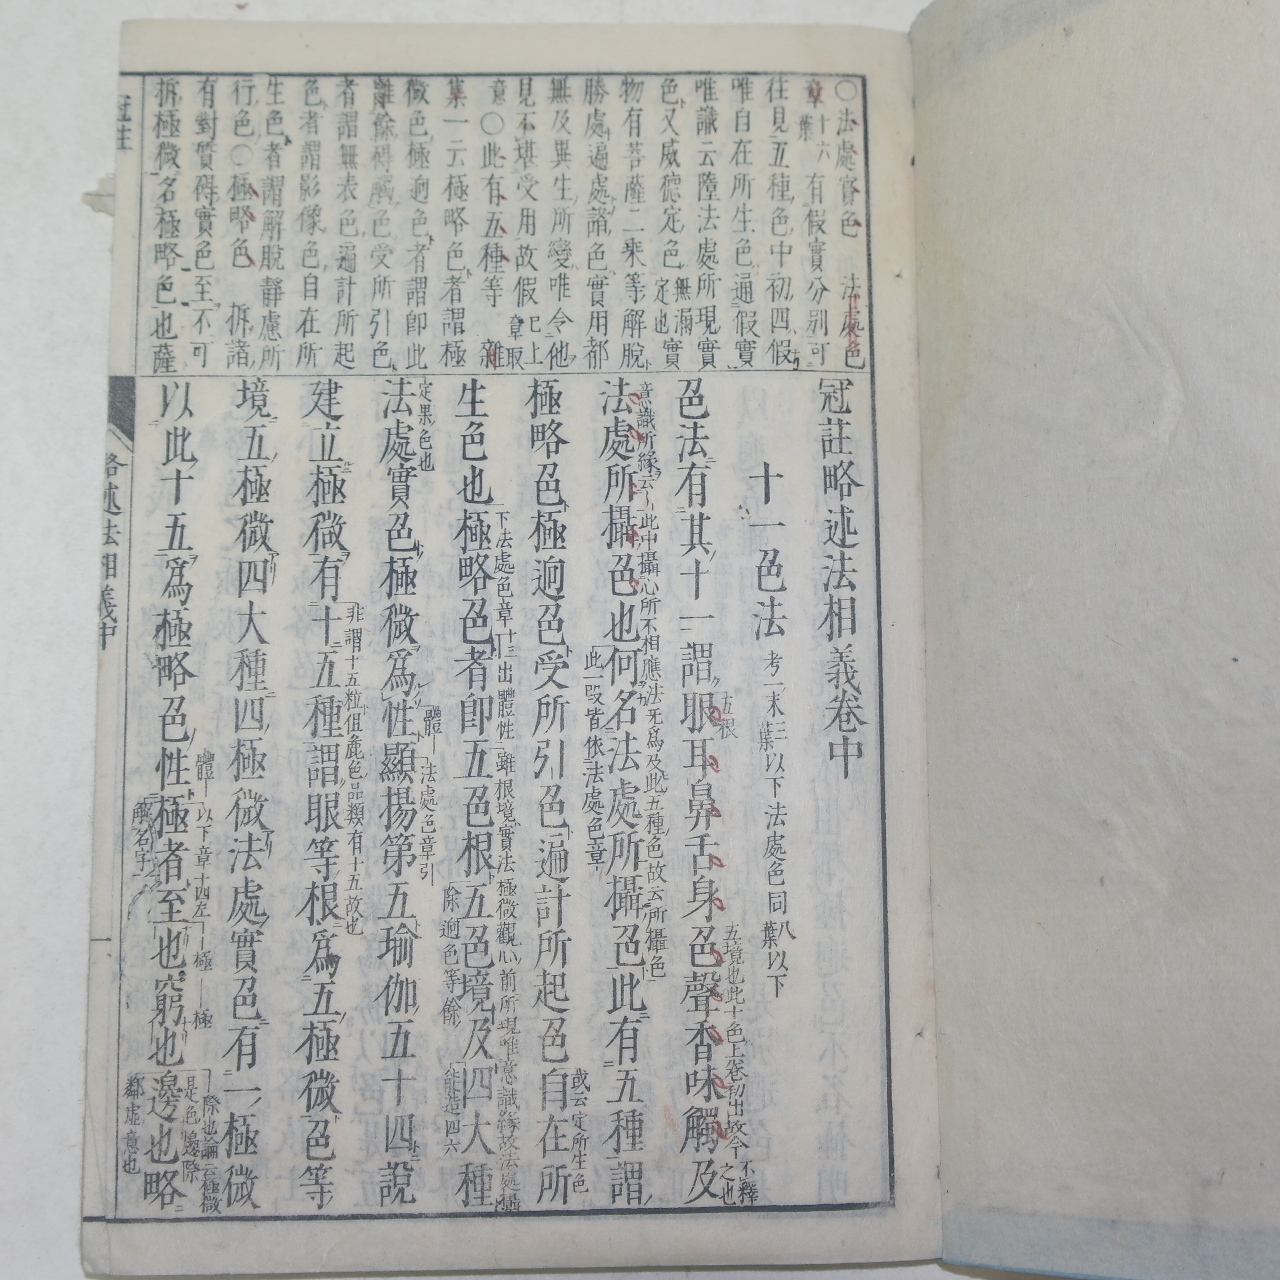 ○法處實色　法處色
章十六葉有假實分別可
往見五種色中初四假
唯自在所生色通假實
唯識云障法處所現實
色又威德定色無漏定也實
物有菩薩二乘等解脫
勝處遍處諸色實用都
無及異生所變唯令他
見不堪受用故假已上章取
意○此有五種等　雜
集一云極略色者謂極
微色極迥色者謂即此
離餘礙觸色受所引色
者謂無表色遍計所起
色者謂影像色自在所
生色者謂解脫靜慮所
行色○極略色　拆諸
有對質碍實色至不可
拆極微名極略色也薩
冠註略述法相義卷中
十一色法考一末三葉以下法處色同八葉以下
色法有其十一謂眼耳鼻舌身色聲香味觸及
五根
五境也此十色上卷初出故今不釋之也
法處所攝色也何名法處所攝色此有五種謂
意識所緣云云此中攝心所不相應法無為及此五種色故云所攝色
此一段皆依法處色章
極略色極迥色受所引色遍計所起色自在所
或云定所生色
生色也極略色者即五色根五色境及四大種
下法處色章十二出體性雖根境實法極微觀心前所現唯意識緣故法處攝
除迥色等餘
能造四六
法處實色極微為性顯揚第五瑜伽五十四說
定果色也
體
法處色章引
建立極微有十五種謂眼等根為五極微色等
非謂十五粒俱麁色品類有十五故也
境五極微四大種四極微法處實色有一極微
以此十五為極略色性極者至也窮也邊也略
體
以下章十四左
解名字
極
極
際也論云極微是色邊際
鄰虛意也
冠註
略述法相義中
一